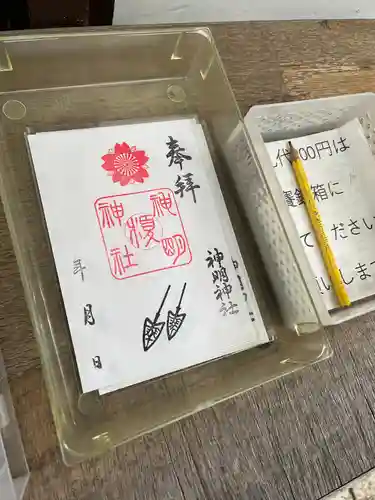 奉拝
神明
榎
神社
神明神社
年
月
日
代300円は
賽銭箱に
ください
いします